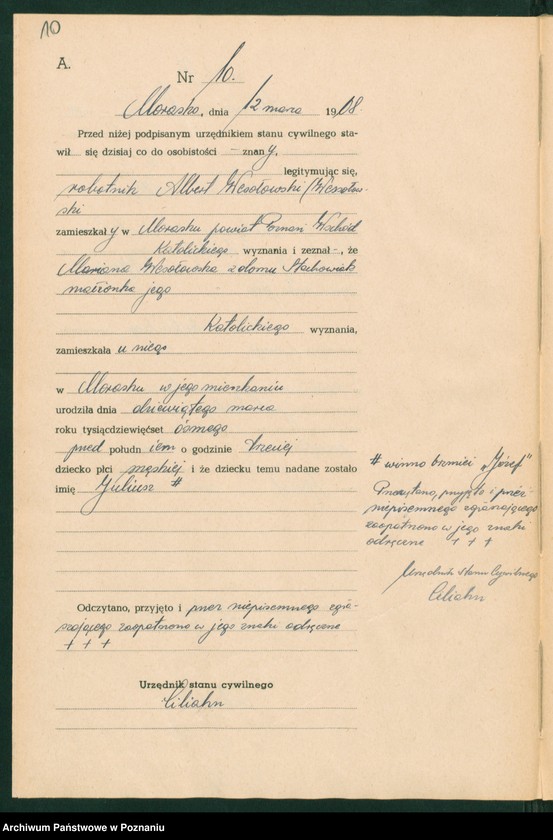 10
A.
Nr 10.
Morasko, dnia 12 marca 1908
Przed niżej podpisanym urzędnikiem stanu cywilnego sta-
wił się dzisiaj co do osobistości - znany,
legitymując się,
robotnik Albert Wesołowski (Wesołow-
ski
zamieszkały w Morasku powiat Poznań Wschód
Katolickiego wyznania i zeznał -, że
Mariana Wesołowska z domu Stachowiak
małżonka jego
Katolickiego wyznania,
zamieszkała u niego
w Morasku w jego mieszkaniu
urodziła dnia dziewiątego marca
roku tysiącdziewięćset ósmego
przed połudn iem o godzinie trzeciej
dziecko płci męskiej i że dziecku temu nadane zostało
imię Juliusz #
# winno brzmieć „Józef"
Przeczytano, przyjęto i przez
niepiśmiennego zgłaszającego
zaopatrzono w jego znaki
odręczne + + +
Urzędnik Stanu Cywilnego
Ciliahn
Odczytano, przyjęto i przez niepiśmiennego zgła-
szającego zaopatrzono w jego znaki odręczne
+ + +
Urzędnik stanu cywilnego
Ciliahn
Archiwum Państwowe w Poznaniu